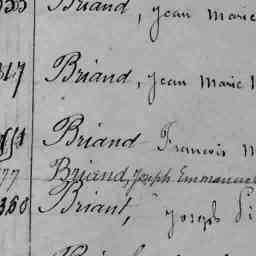 Briand, Jean Marie
Briand, Jean Marie
Briand Francois
77 Briand, Joseph Emmanuel
360 Briant, Joseph